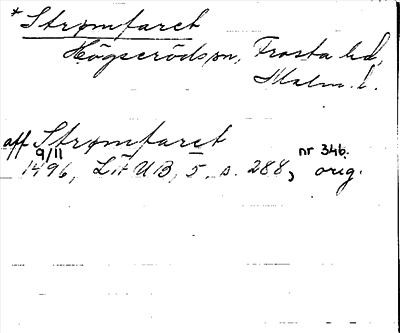 *Strømfaret
Högserödsn, Frosta hd,
Malm. l.
aff Strømfaret
9/11 nr 346.
1496, LtUB, 5 s. 288, orig.